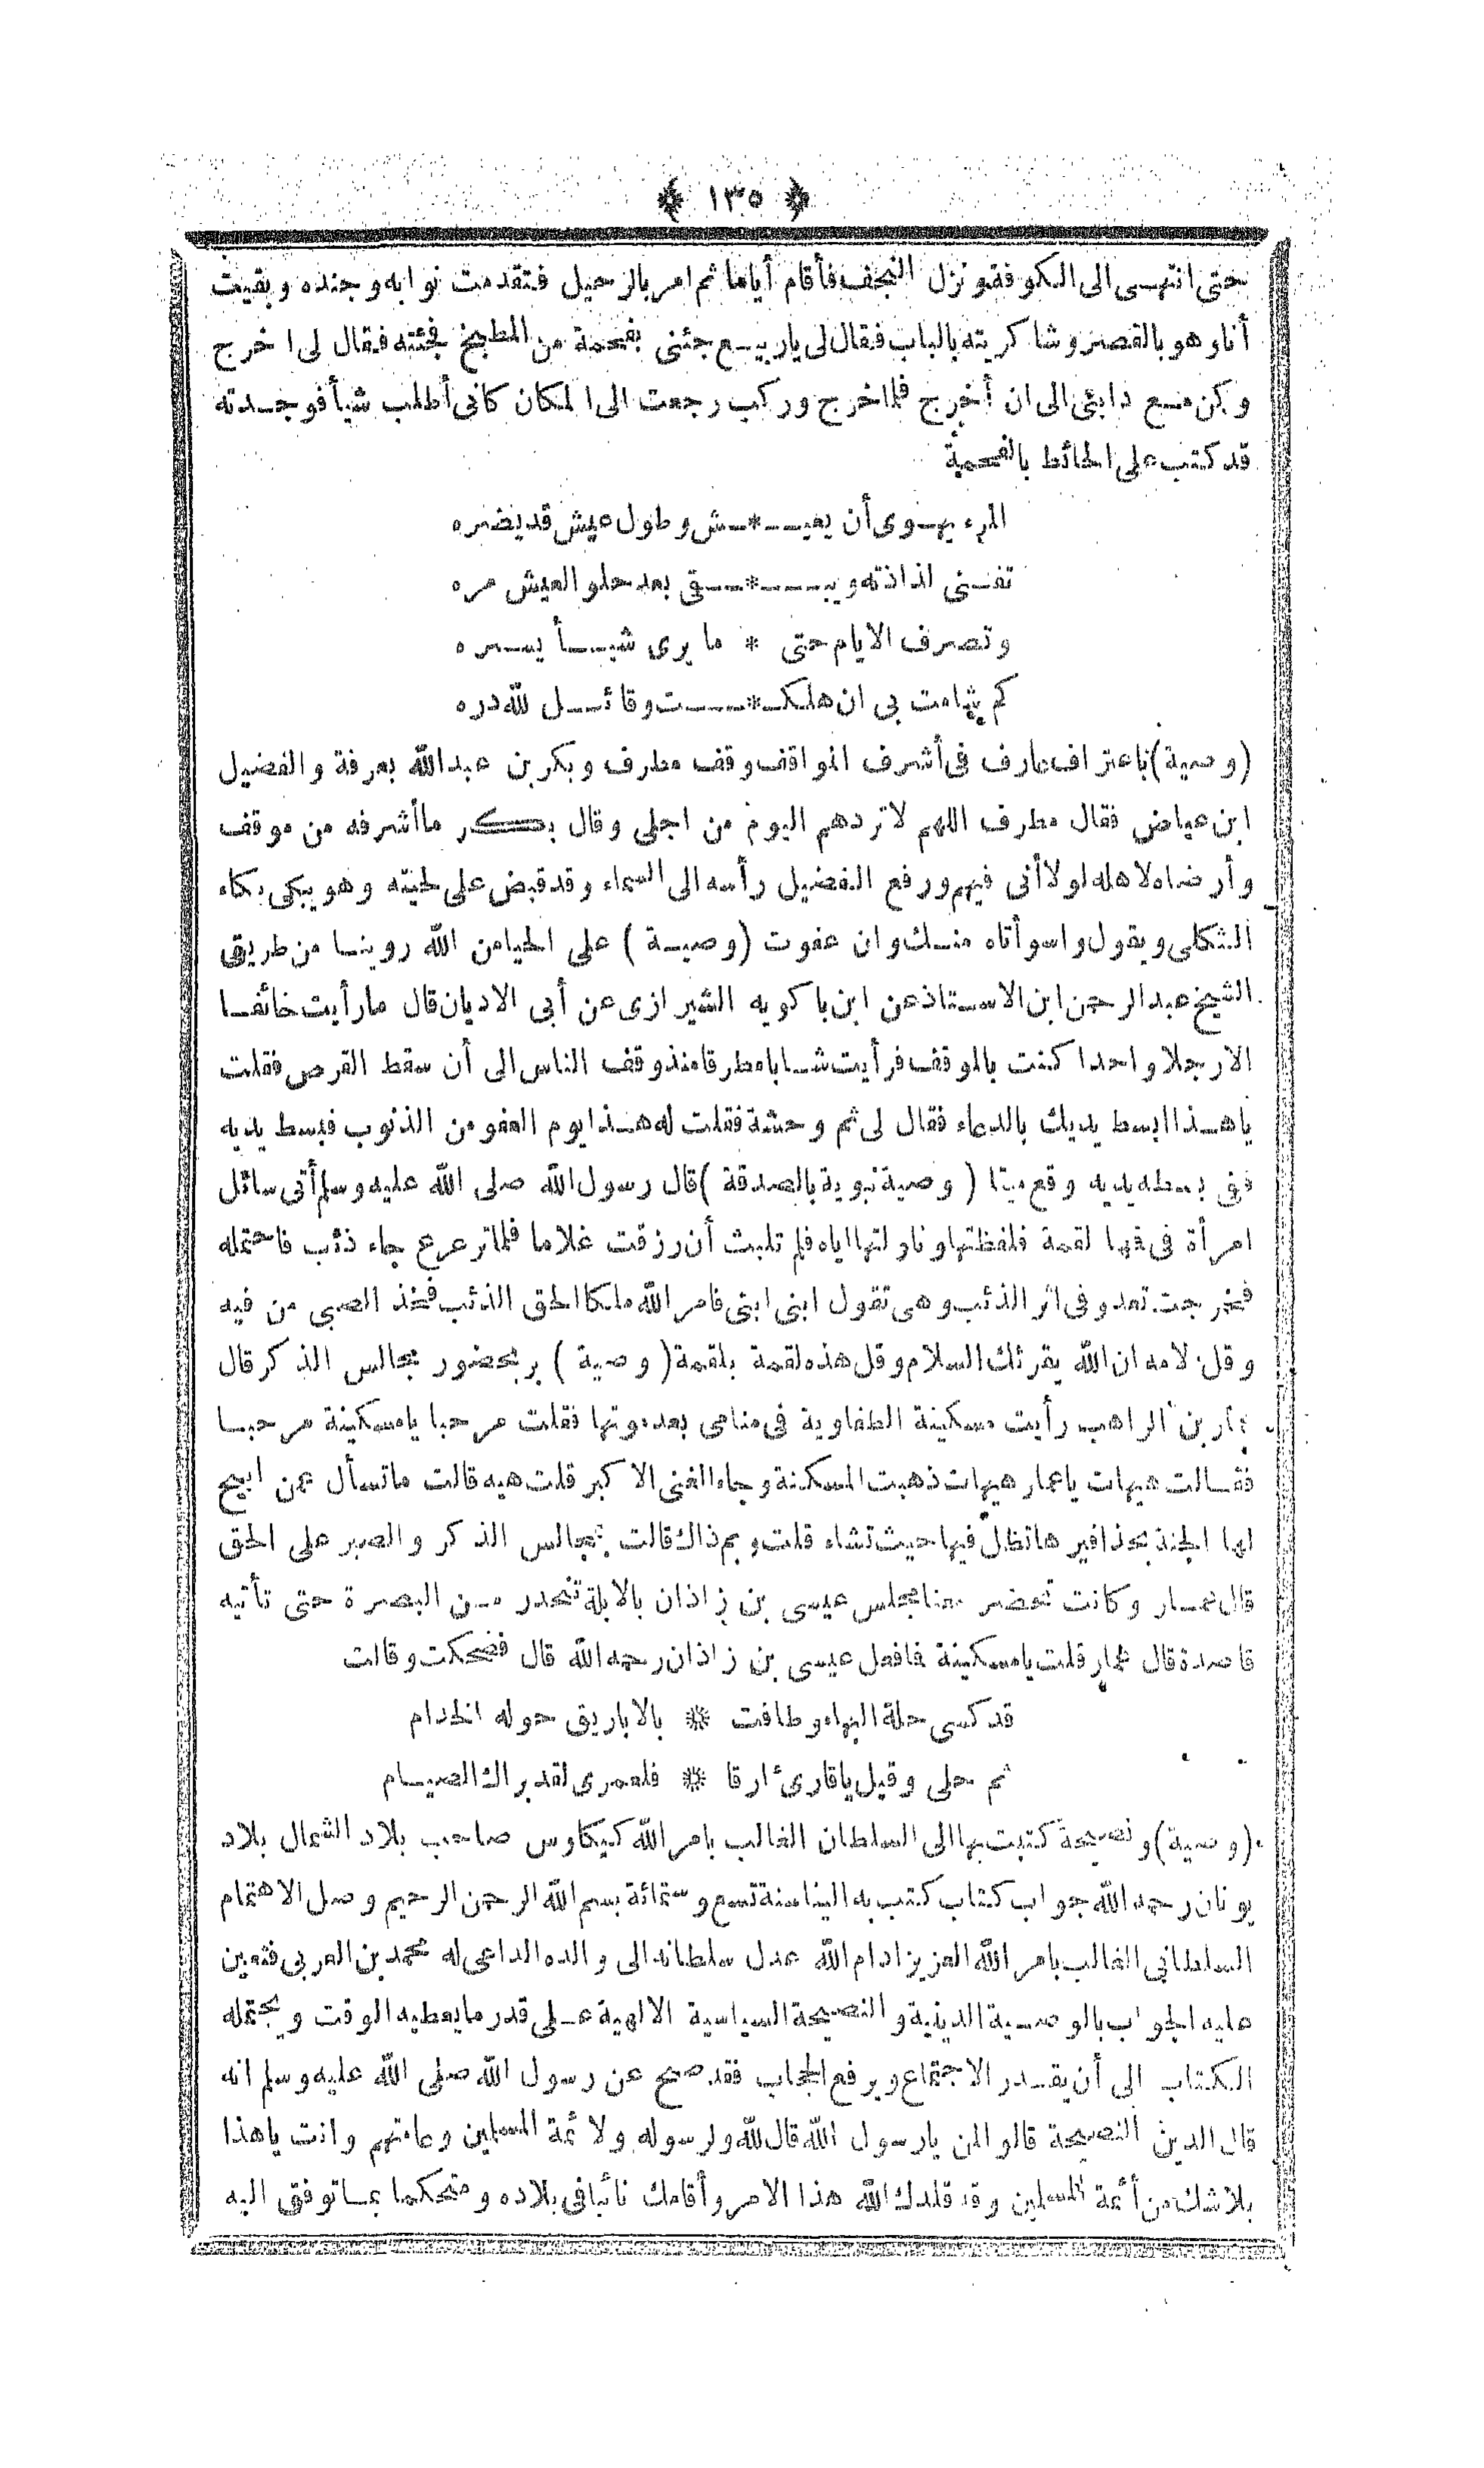 ﴿ ١٣٥ ﴾
حتى انتهى الى الكوفة ونزل النجف فأقام أياما ثم امر بالرحيل فتقدمت نوابه وجنده وبقيت
أنا وهو بالقصر وشاكريته بالباب فقال لى ياربيع جئنى بفحمة من المطبخ فجئته فقال لى اخرج
وكن مع دابتى الى ان أخرج فلما خرج وركب رجعت الى المكان كانى أطلب شيأ فوجدته
قد كتب على الحائط بالفحمة
المرء يهوى أن يعيـ * ـش وطول عيش قد يضره
تفنى لذاذته ويبـ * ـقى بعد حلو العيش مره
وتصرف الايام حتى * ما يرى شيأ يسره
كم شامت بى ان هلكـ * ـت وقائل لله دره
(وصية) باعتراف عارف فى أشرف المواقف وقف مطرف وبكر بن عبد الله بعرفة والفضيل
ابن عياض فقال مطرف اللهم لا تردهم اليوم من اجلى وقال بكر ما أشرفه من موقف
وأرضاه لاهله لولا أنى فيهم ورفع الفضيل رأسه الى السماء وقد قبض على لحيته وهو يبكى بكاء
الثكلى ويقول واسوأتاه منك وان عفوت (وصية) على الحيا من الله روينا من طريق
الشيخ عبد الرحمن ابن الاستاذ عن ابن باكويه الشيرازى عن أبى الاديان قال ما رأيت خائفا
الا رجلا واحدا كنت بالموقف فرأيت شابا مطرقا منذ وقف الناس الى أن سقط القرص فقلت
يا هذا ابسط يديك بالدعاء فقال لى ثم وحشة فقلت له هذا يوم العفو من الذنوب فبسط يديه
ففى بسطه يديه وقع ميتا (وصية نبوية بالصدقة) قال رسول الله صلى الله عليه وسلم أتى سائل
امرأة فى فمها لقمة فلفظتها وناولتها اياه فلم تلبث أن رزقت غلاما فلما ترعرع جاء ذئب فاحتمله
فخرجت تعدو فى اثر الذئب وهى تقول ابنى ابنى فامر الله ملكا الحق الذئب فخذ الصبى من فيه
وقل لامه ان الله يقرئك السلام وقل هذه لقمة بلقمة (وصية) بر بحضور مجالس الذكر قال
عمار بن الراهب رأيت مسكينة الطفاوية فى منامى بعد موتها فقلت مرحبا يا مسكينة مرحبا
فقالت هيهات يا عمار هيهات ذهبت المسكنة وجاء الغنى الاكبر قلت هيه قالت ما تسأل عمن ابيح
لها الجنة بحذافيرها تظل فيها حيث تشاء قلت وبم ذاك قالت بمجالس الذكر والصبر على الحق
قال عمار وكانت تحضر معنا مجلس عيسى بن زاذان بالابلة تنحدر من البصرة حتى تأتيه
قاصدة قال عمار قلت يا مسكينة فما فعل عيسى بن زاذان رحمه الله قال فضحكت وقالت
قد كسى حلة البهاء وطافت * بالاباريق حوله الخدام
ثم حلى وقيل يا قارئ ارقا * فلعمرى لقد براك الصيام
(وصية) ونصيحة كتبت بها الى السلطان الغالب بامر الله كيكاوس صاحب بلاد الشمال بلاد
يونان رحمه الله جواب كتاب كتب به الينا سنة تسع وستمائة بسم الله الرحمن الرحيم وصل الاهتمام
السلطانى الغالب بامر الله العزيز ادام الله عدل سلطانه الى والده الداعى له محمد بن العربى فتعين
عليه الجواب بالوصية الدينية والنصيحة السياسية الالهية على قدر ما يعطيه الوقت ويحتمله
الكتاب الى أن يقدر الاجتماع ويرفع الحجاب فقد صح عن رسول الله صلى الله عليه وسلم انه
قال الدين النصيحة قالوا لمن يارسول الله قال لله ولرسوله ولائمة المسلمين وعامتهم وانت يا هذا
بلا شك من أئمة المسلمين وقد قلدك الله هذا الامر وأقامك نائبا فى بلاده ومتحكما بما توفق اليه